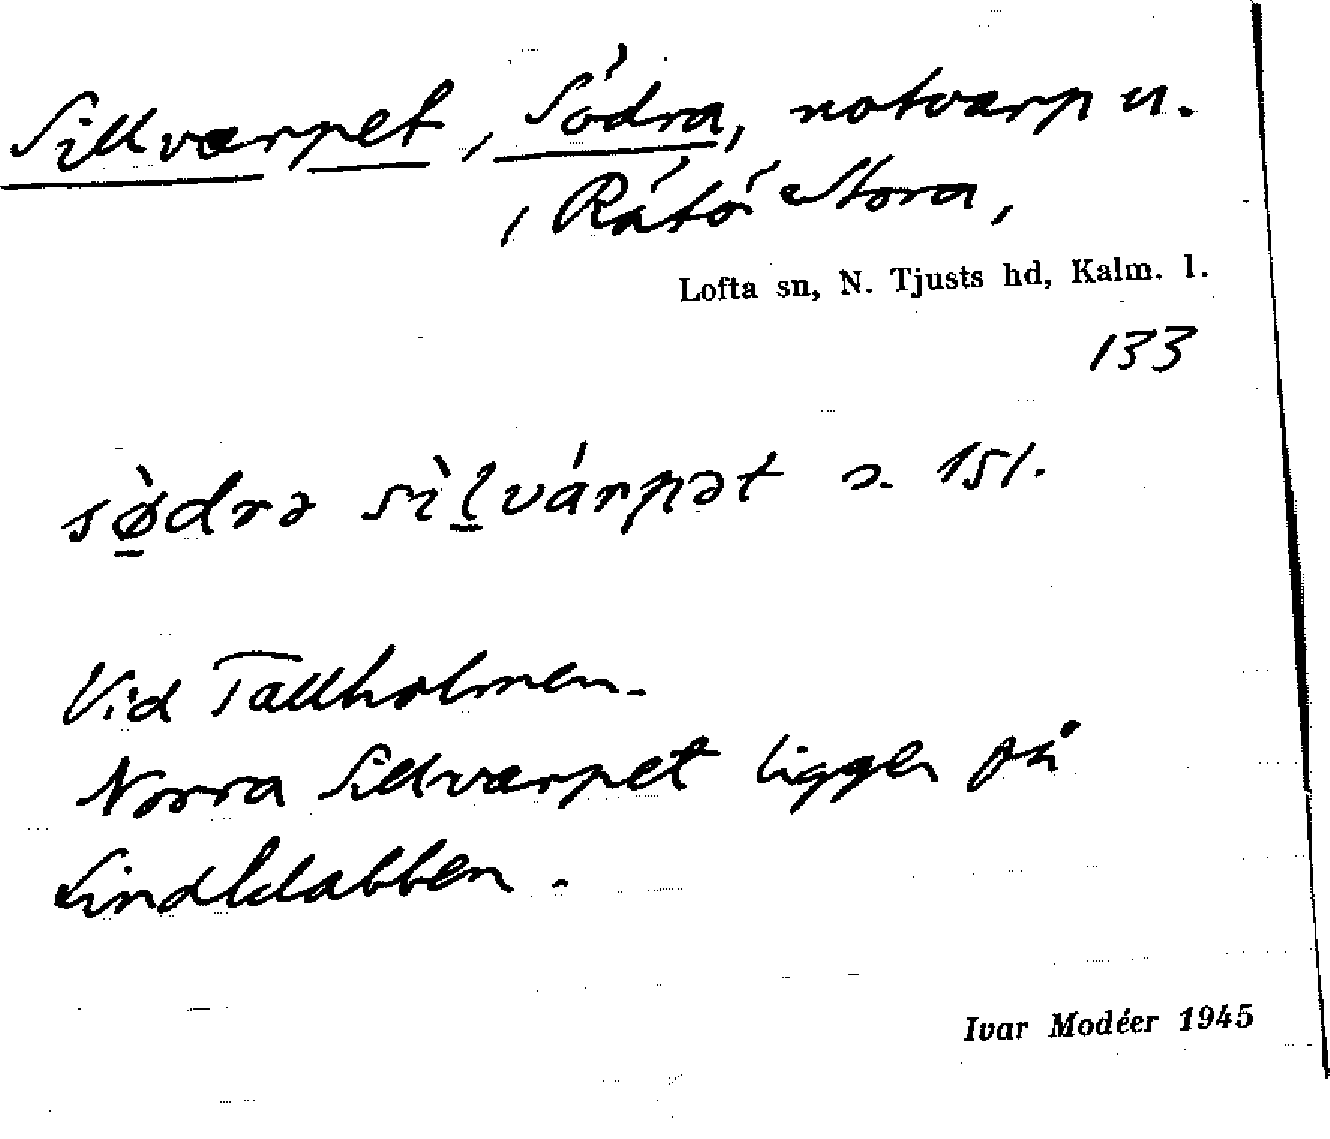 Sillvarpet, Södra, notvarp u.
Råtö Stora,
Lofta sn, N. Tjusts hd, Kalm. l.
133
sø̀drə sìlvárpət
Vid Tallholmen.
Norra Sillvarpet ligger på
Lindkläbben.
Ivar Modéer 1945